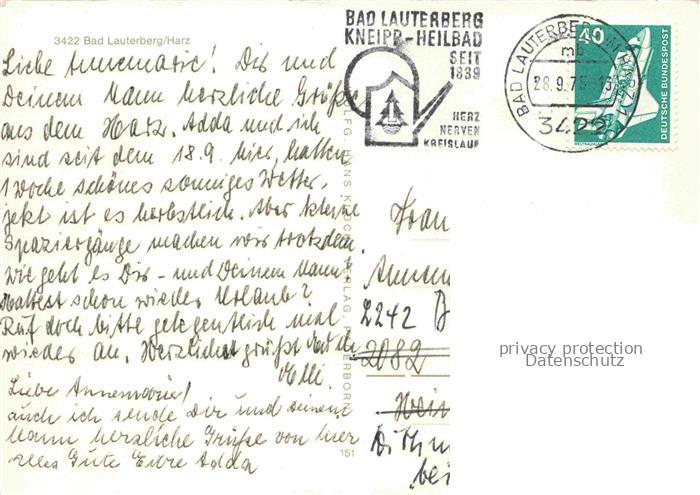 3422 Bad Lauterberg/Harz
Liebe Annemarie! Dir und
Deinem Mann herzliche Grüße
aus dem Harz. Adda und ich
sind seit dem 18.9. hier, hatten
1 Woche schönes sonniges Wetter,
jetzt ist es herbstlich. Aber kleine
Spaziergänge machen wir trotzdem.
Wie geht es Dir - und Deinem Mann?
Hattest schon wieder Urlaub?
Ruf doch bitte gelegentlich mal
wieder an. Herzlichst grüßt Euch
Elli.
Liebe Annemarie!
auch ich sende Dir und deinem
Mann herzliche Grüße von hier
alles Gute Eure Adda
151
VERLAG, PADERBORN
BAD LAUTERBERG
KNEIPP-HEILBAD
SEIT
1839
HERZ
NERVEN
KREISLAUF
BAD LAUTERBERG IM HARZ 1
mb
28.9.75
3422
40
DEUTSCHE BUNDESPOST
Frau
Annem
2242 B
2082
Hein
Dithm
bei
privacy protection
Datenschutz